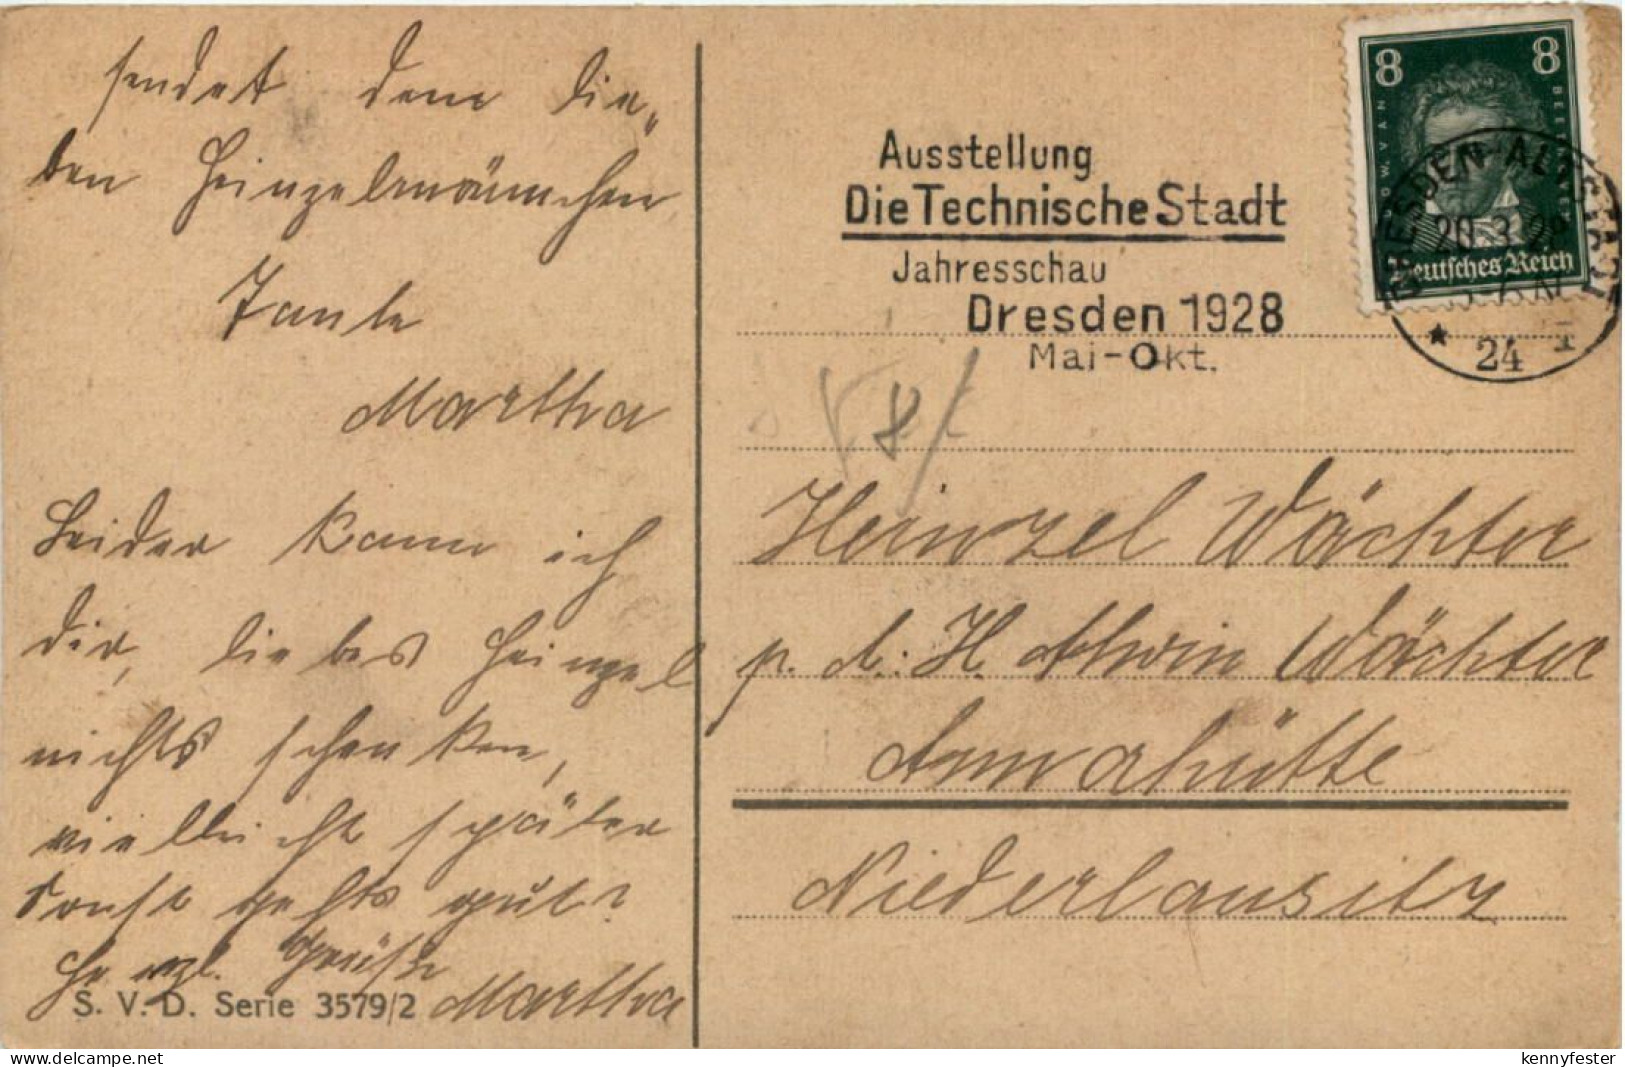 sendet dem lie„
ben Heinzelmännchen
Tante
Martha
Leider kann ich
dir, liebes Heinzel
nichts schenken,
vielleicht später
sonst gehts gut?
Herzl. Grüße
Martha
S. V. D. Serie 3579/2
Ausstellung
Die Technische Stadt
Jahresschau
Dresden 1928
Mai-Okt.
8 8
Deutsches Reich
DRESDEN-ALTSTADT
20.3.28
24
8
Heinzel Wächter
p. A. H. Alwin Wächter
Annahütte
Niederlausitz
kennyfester
www.delcampe.net